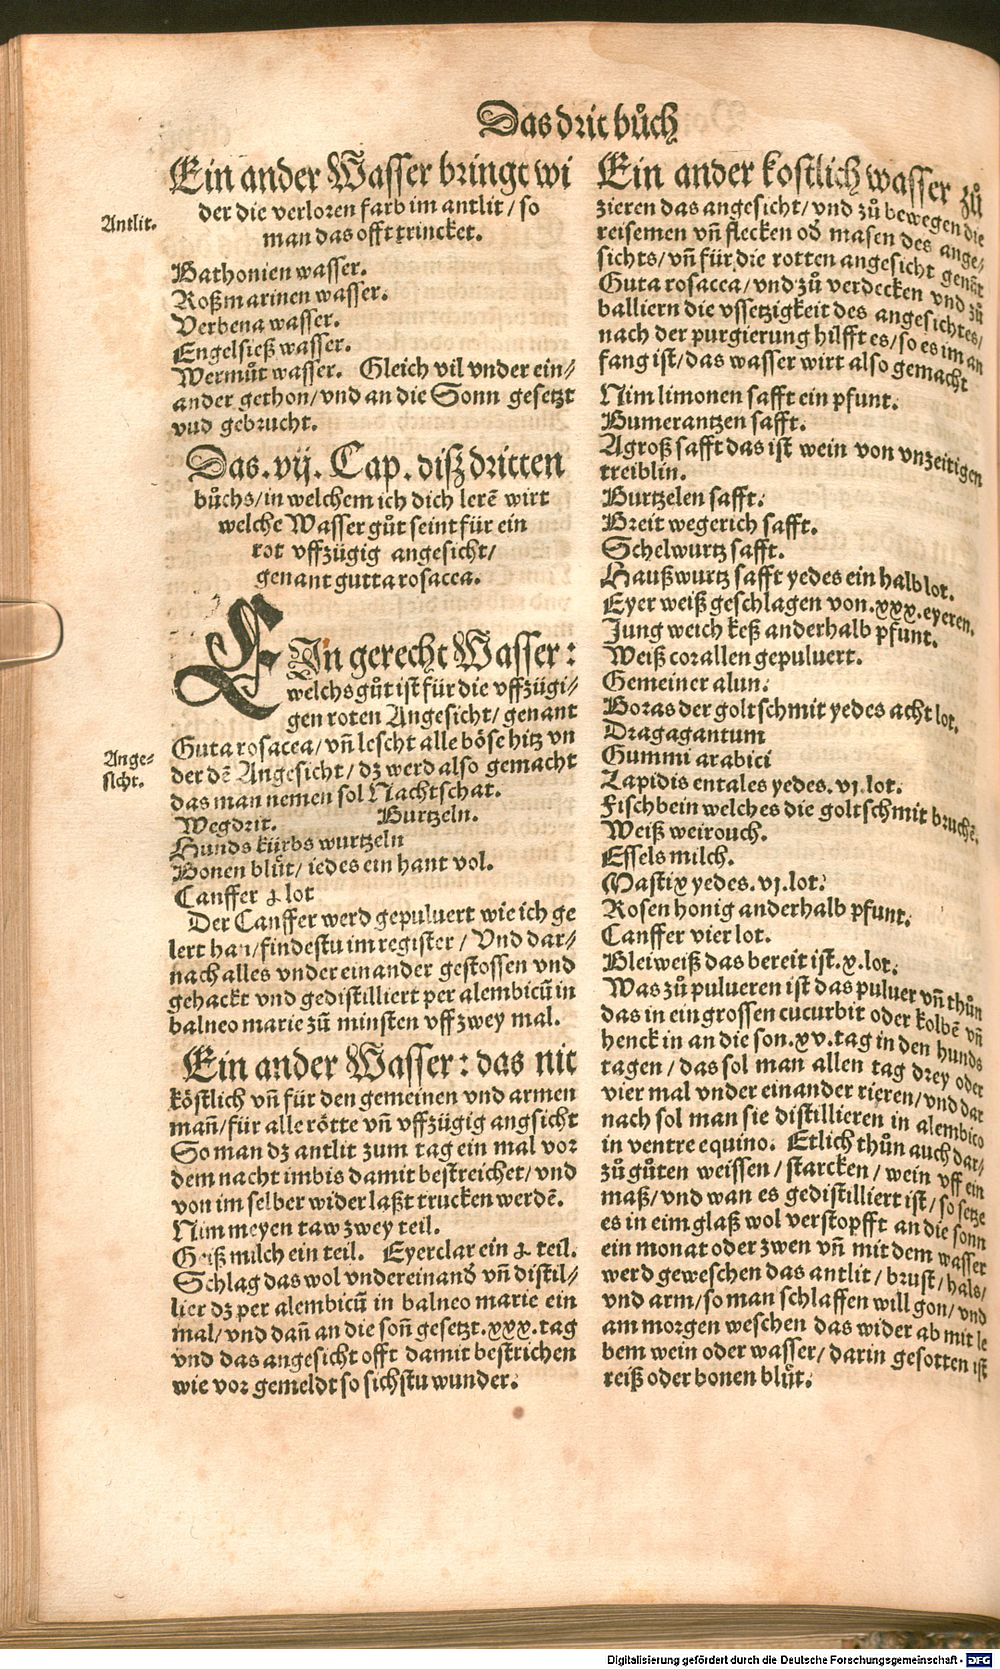 Das drit bůch
Ein ander Wasser bringt wi
der die verloren farb im antlit / so
man das offt trincket.
Antlit.
Bathonien wasser.
Roßmarinen wasser.
Verbena wasser.
Engelsieß wasser.
Wermůt wasser. Gleich vil vnder ein-
ander gethon / vnd an die Sonn gesetzt
vnd gebrucht.
Das .vij. Cap. disz dritten
bůchs / in welchem ich dich lerē wirt
welche Wasser gůt seint für ein
rot vffzügig angesicht /
genant gutta rosacea.
EIn gerecht Wasser :
welchs gůt ist für die vffzügi-
gen roten Angesicht / genant
Guta rosacea / vñ lescht alle böse hitz vn
der dē Angesicht / dz werd also gemacht
das man nemen sol Nachtschat.
Ange-
sicht.
Wegdrit. Burtzeln.
Hunds kürbs wurtzeln
Bonen blůt / iedes ein hant vol.
Canffer ɉ lot
Der Canffer werd gepuluert wie ich ge
lert han / findestu im register / Vnd dar-
nach alles vnder einander gestossen vnd
gehackt vnd gedistilliert per alembicū in
balneo marie zů minsten vff zwey mal.
Ein ander Wasser : das nit
köstlich vñ für den gemeinen vnd armen
mañ / für alle rötte vñ vffzügig angsicht
So man dz antlit zum tag ein mal vor
dem nacht imbis damit bestreichet / vnd
von im selber wider laßt trucken werdē.
Nim meyen taw zwey teil.
Geiß milch ein teil. Eyerclar ein ɉ teil.
Schlag das wol vndereinand vñ distil-
lier dz per alembicū in balneo marie ein
mal / vnd dañ an die soñ gesetzt .xxx. tag
vnd das angesicht offt damit bestrichen
wie vor gemeldt so sichstu wunder.
Ein ander kostlich wasser zů
zieren das angesicht / vnd zů bewegen die
reisemen vñ flecken od masen des ange-
sichts / vñ für die rotten angesicht genāt
Guta rosacea / vnd zů verdecken vnd zů
balliern die vssetzigkeit des angesichtes /
nach der purgierung hilfft es / so es im an
fang ist / das wasser wirt also gemacht
Nim limonen safft ein pfunt.
Bumerantzen safft.
Agroß safft das ist wein von vnzeitigen
treiblin.
Burtzelen safft.
Breit wegerich safft.
Schelwurtz safft.
Haußwurtz safft yedes ein halb lot.
Eyer weiß geschlagen von .xxx. eyeren.
Jung weich keß anderhalb pfunt.
Weiß corallen gepuluert.
Gemeiner alun.
Boras der goltschmit yedes acht lot.
Dragagantum
Gummi arabici
Lapidis entales yedes .vj. lot.
Fischbein welches die goltschmit bruchē.
Weiß weirouch.
Essels milch.
Mastix yedes .vj. lot.
Rosen honig anderhalb pfunt.
Canffer vier lot.
Bleiweiß das bereit ist .x. lot.
Was zů pulueren ist das puluer vñ thůn
das in ein grossen cucurbit oder kolbē vñ
henck in an die son .xv. tag in den hunds
tagen / das sol man allen tag drey oder
vier mal vnder einander rieren / vnd dar
nach sol man sie distillieren in alembico
in ventre equino. Etlich thůn auch dar-
zů gůten weissen / starcken / wein vff ein
maß / vnd wan es gedistilliert ist / so setze
es in eim glaß wol verstopfft an die sonn
ein monat oder zwen vñ mit dem wasser
werd geweschen das antlit / brust / hals /
vnd arm / so man schlaffen will gon / vnd
am morgen weschen das wider ab mit le
bem wein oder wasser / darin gesotten ist
reiß oder bonen blůt.
Digitalisierung gefördert durch die Deutsche Forschungsgemeinschaft - DFG